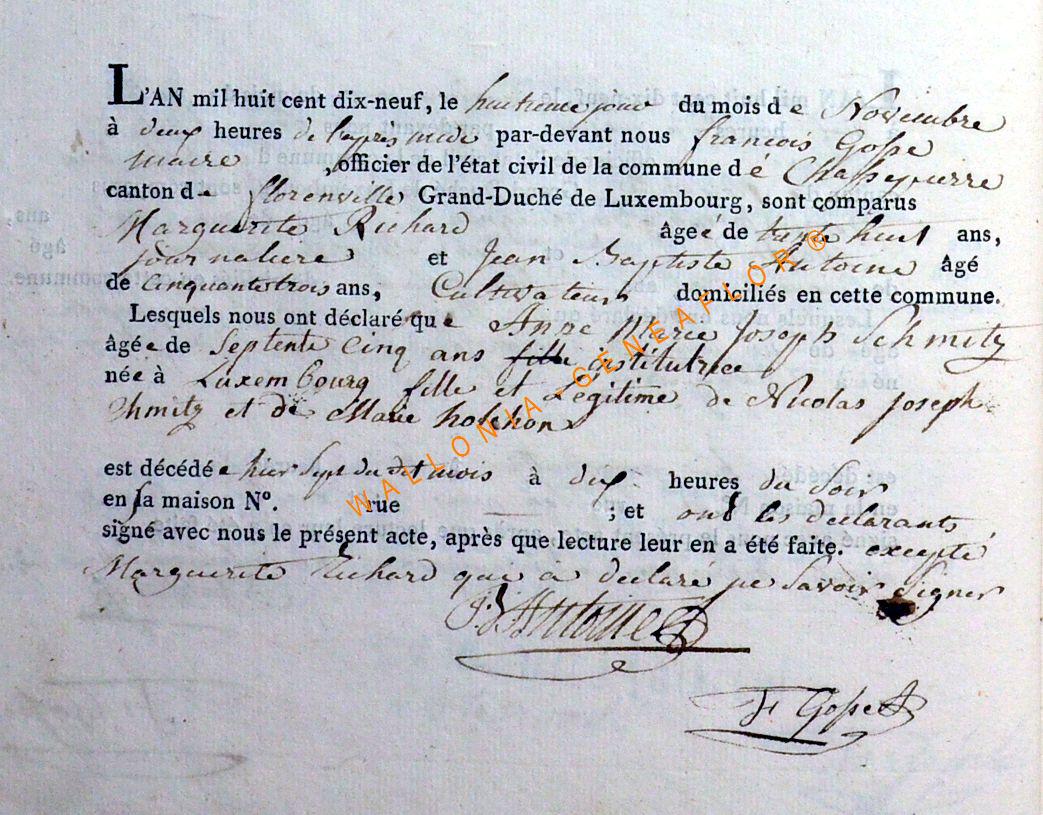 L'AN mil huit cent dix-neuf, le huitieme jour du mois de Novembre
à deux heures de l'après midi par-devant nous francois Gosse
maire, officier de l'état civil de la commune dé Chassepierre
canton de florenville Grand-Duché de Luxembourg, sont comparus
Marguerite Richard âgeé de trente huit ans,
journaliere et Jean Baptiste Antoine âgé
de cinquante trois ans, Cultivateur domiciliés en cette commune.
Lesquels nous ont déclaré que Anne Marie Joseph Schmitz
âgée de Septente Cinq ans fille institutrice
née à Luxembourg fille et Légitime de Nicolas Joseph
Shmitz et de Marie
est décédé hier Sept du dit mois à deux heures du Soir
en sa maison N°. rue ; et ont les declarants
signé avec nous le présent acte, après que lecture leur en a été faite. excepté
Marguerite Richard qui a declaré ne Savoir Signer
Antoine
F Gosse
WALLONIA-GENEAFLOR®